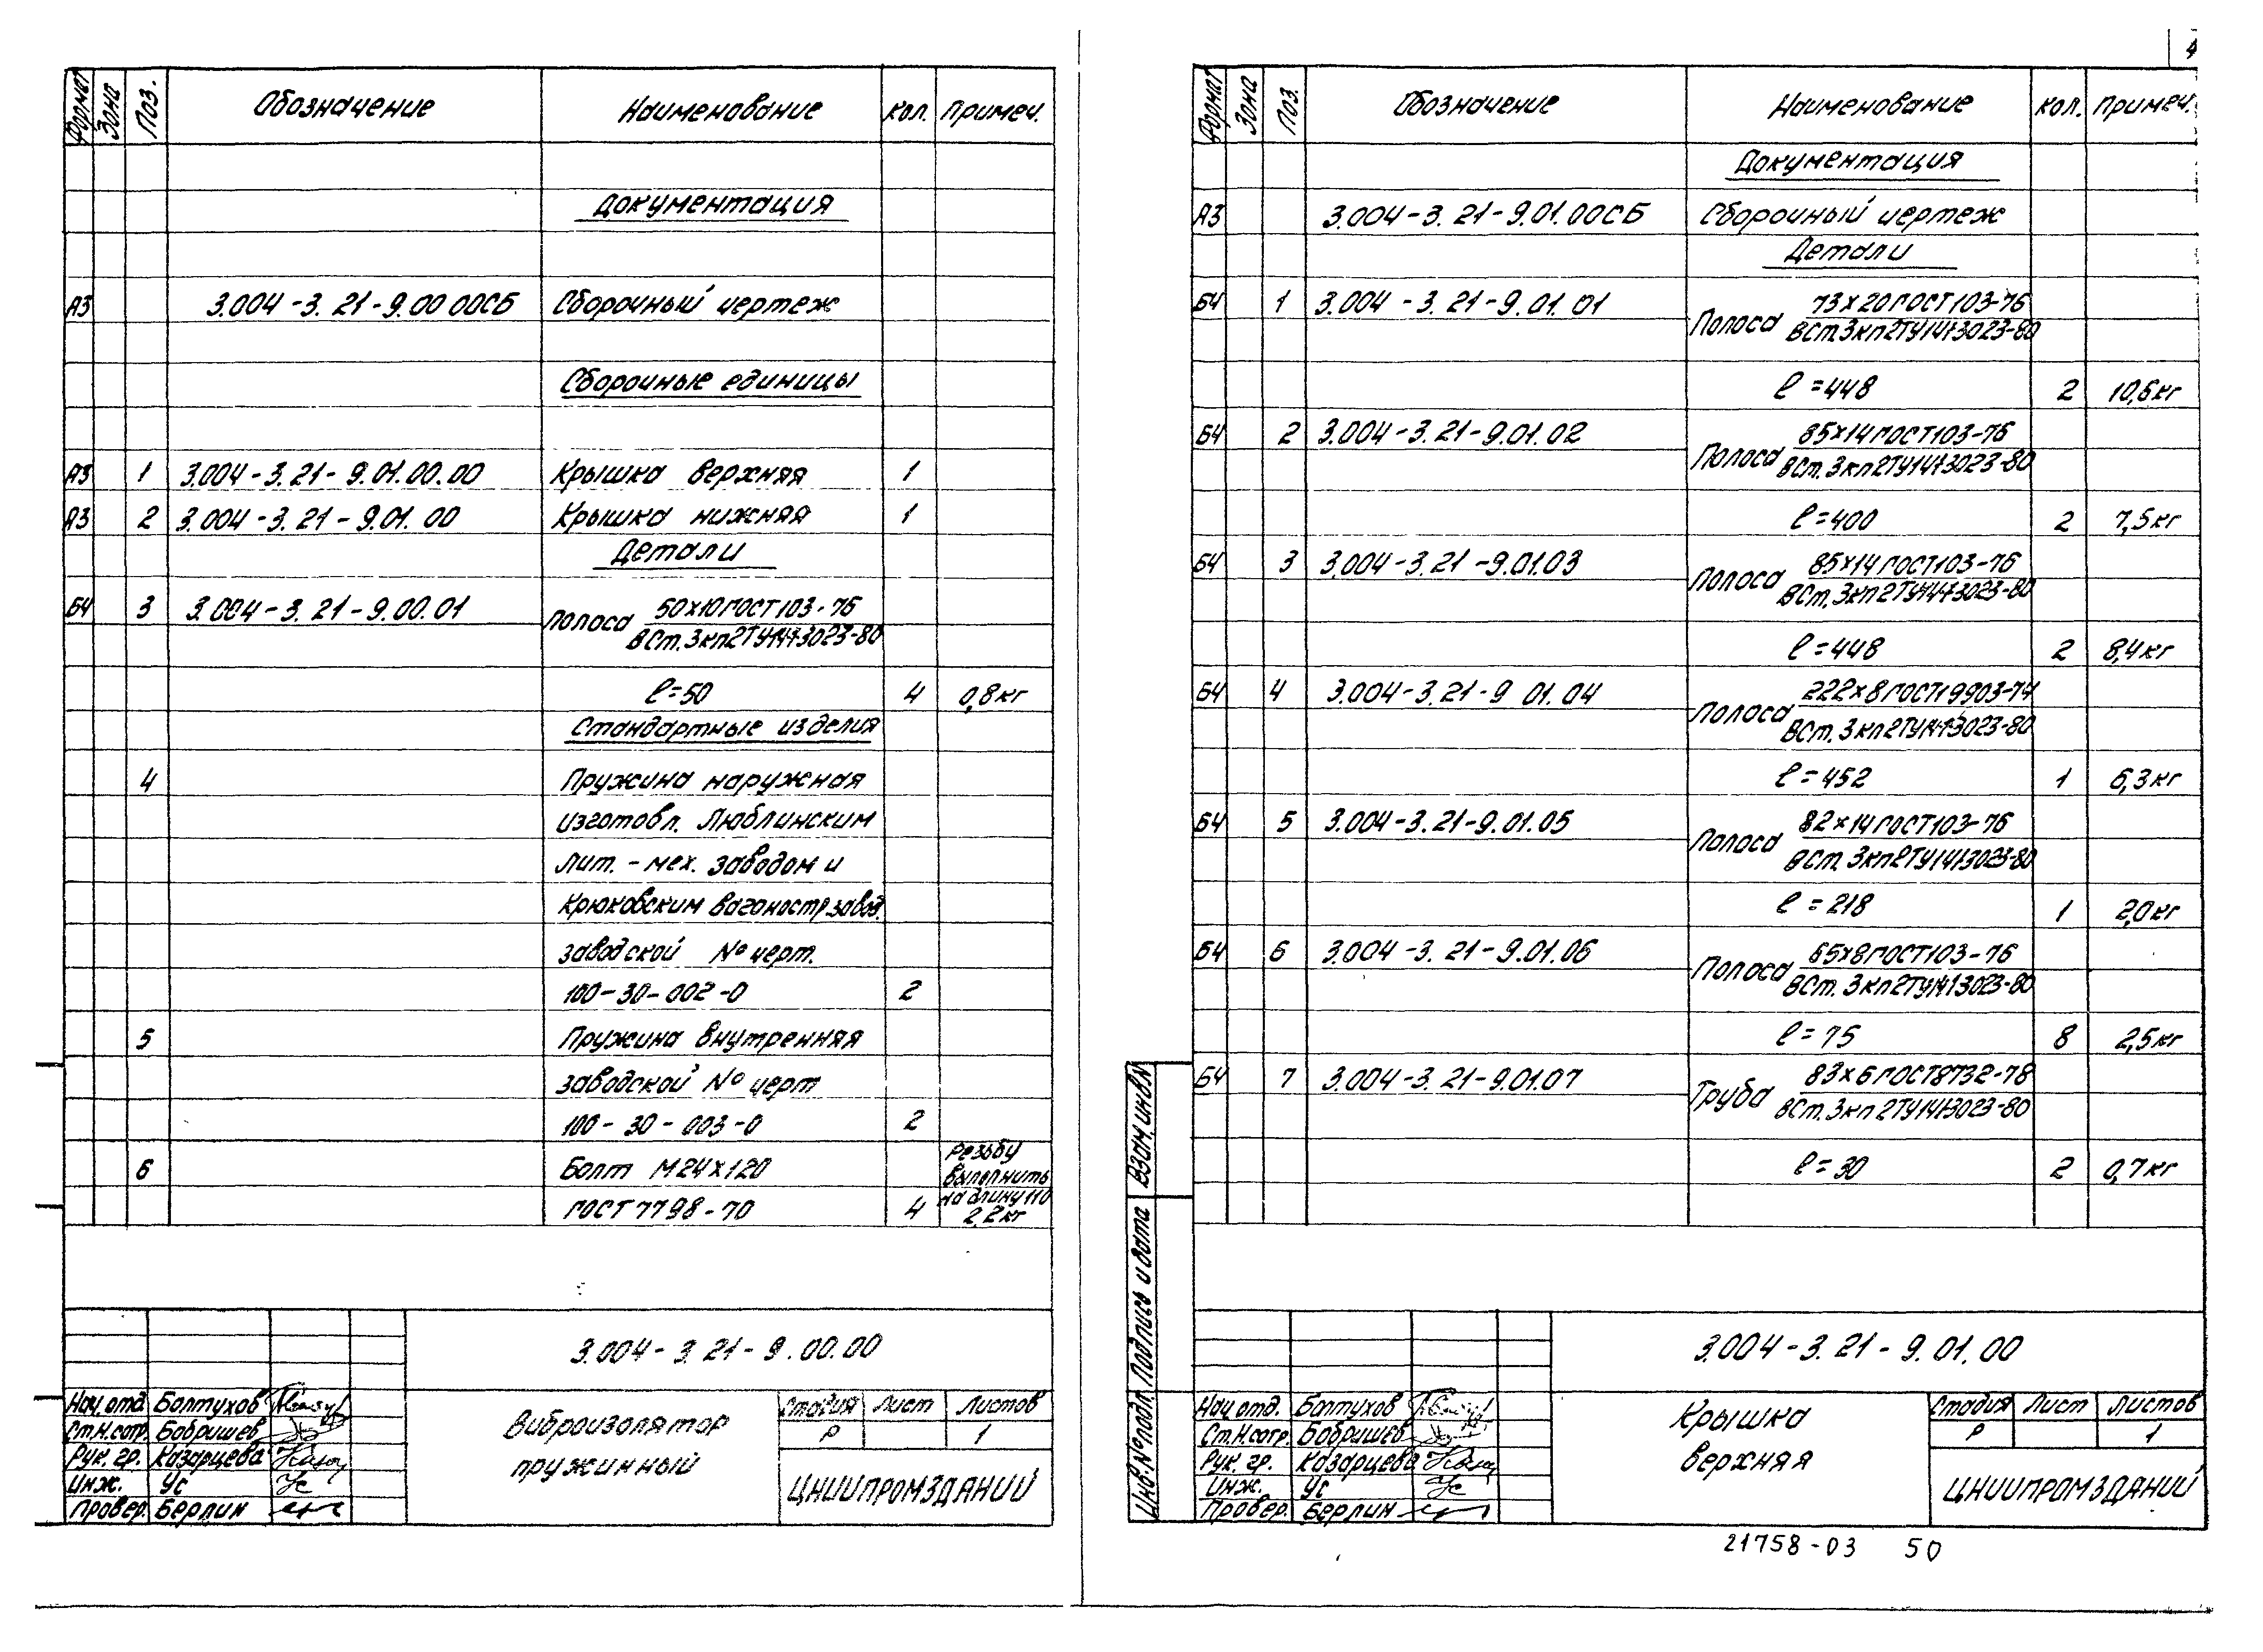 Формат Зона Поз. Обозначение Наименование Кол. Примеч.
Документация
А3 3.004-3.21-9.00 00СБ Сборочный чертеж
Сборочные единицы
А3 1 3.004-3.21-9.01.00.00 Крышка верхняя 1
А3 2 3.004-3.21-9.01.00 Крышка нижняя 1
Детали
БЧ 3 3.004-3.21-9.00.01 Полоса 50х10 ГОСТ 103-76
ВСт.3кп2ТУ14-1-3023-80
ℓ=50 4 0,8кг
Стандартные изделия
4 Пружина наружная
изготовл. Люблинским
лит.-мех. заводом и
Крюковским вагонострзавод.
заводской № черт.
100-30-002-0 2
5 Пружина внутренняя
заводской № черт
100-30-003-0 2
Резьбу
6 Болт М24х120 выполнить
на длину 110
ГОСТ 7798-70 4 2,2кг
3.004-3.21-9.00.00
Нач.отд. Болтухов
Ст.н.сотр. Бобришев
Рук. гр. Казарцева
Инж. Ус
Провер. Берлин
Виброизолятор
пружинный
Стадия Лист Листов
Р 1
ЦНИИПРОМЗДАНИЙ
4
Формат Зона Поз. Обозначение Наименование Кол. Примеч.
Документация
А3 3.004-3.21-9.01.00СБ Сборочный чертеж
Детали
БЧ 1 3.004-3.21-9.01.01 Полоса 73х20 ГОСТ 103-76
ВСт.3кп2ТУ14-1-3023-80
ℓ=448 2 10,6кг
БЧ 2 3.004-3.21-9.01.02 Полоса 85х14 ГОСТ 103-76
ВСт.3кп2ТУ14-1-3023-80
ℓ=400 2 7,5кг
БЧ 3 3.004-3.21-9.01.03 Полоса 85х14 ГОСТ 103-76
ВСт.3кп2ТУ14-1-3023-80
ℓ=448 2 8,4кг
БЧ 4 3.004-3.21-9 01.04 Полоса 222х8 ГОСТ 19903-74
ВСт.3кп2ТУ14-1-3023-80
ℓ=452 1 6,3кг
БЧ 5 3.004-3.21-9.01.05 Полоса 82х14 ГОСТ 103-76
ВСт.3кп2ТУ14-1-3023-80
ℓ=218 1 2,0кг
БЧ 6 3.004-3.21-9.01.06 Полоса 65х8 ГОСТ 103-76
ВСт.3кп2ТУ14-1-3023-80
ℓ=75 8 2,5кг
БЧ 7 3.004-3.21-9.01.07 Труба 83х6 ГОСТ 8732-78
ВСт.3кп2ТУ14-1-3023-80
ℓ=30 2 0,7кг
Инв.№подл. Подпись и дата Взам.инв.№
3.004-3.21-9.01.00
Нач.отд. Болтухов
Ст.н.сотр. Бобришев
Рук. гр. Казарцева
Инж. Ус
Провер. Берлин
Крышка
верхняя
Стадия Лист Листов
Р 1
ЦНИИПРОМЗДАНИЙ
21758-03 50